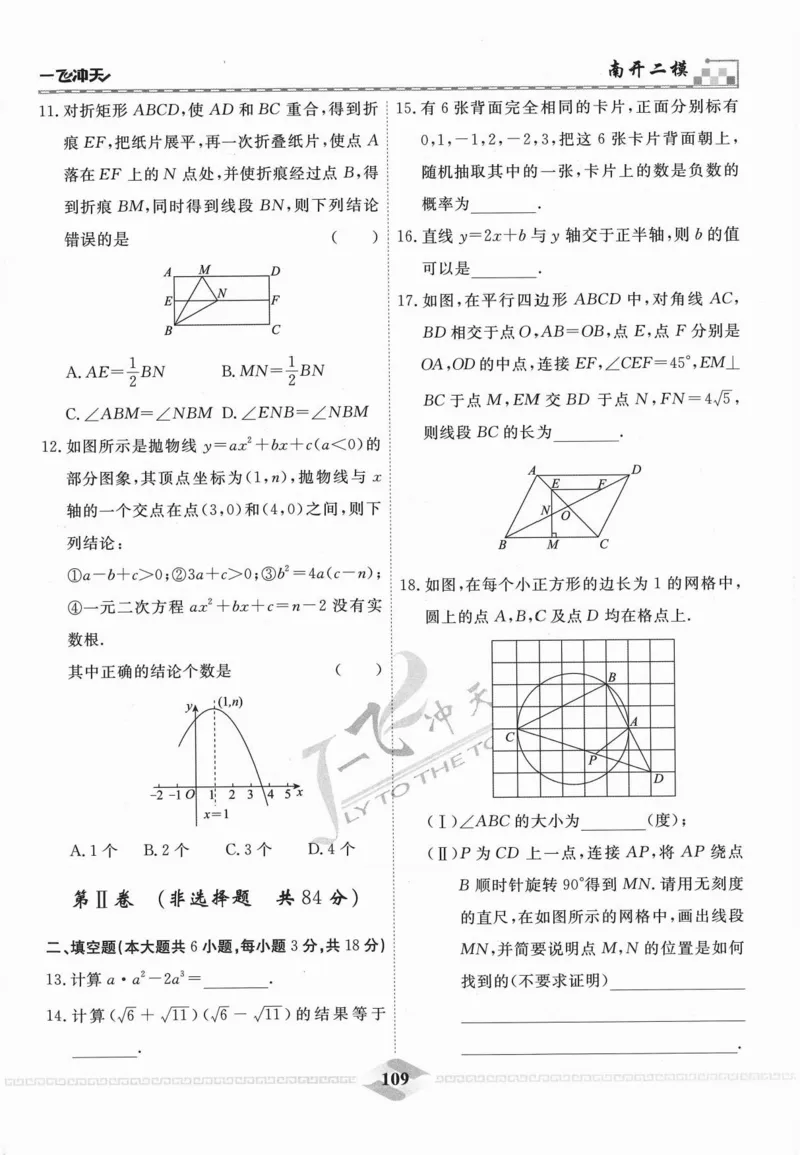 一飞冲天
南开二模
11.对折矩形 ABCD,使 AD 和 BC 重合,得到折
痕 EF,把纸片展平,再一次折叠纸片,使点 A
落在 EF 上的 N 点处,并使折痕经过点 B,得
到折痕 BM,同时得到线段 BN,则下列结论
错误的是 ( )
A M D
E N F
B C
A. AE=\frac{1}{2}BN B. MN=\frac{1}{2}BN
C. ∠ABM=∠NBM D. ∠ENB=∠NBM
12.如图所示是抛物线 y=ax²+bx+c(a<0)的
部分图象,其顶点坐标为(1,n),抛物线与 x
轴的一个交点在点(3,0)和(4,0)之间,则下
列结论:
①a-b+c>0;②3a+c>0;③b²=4a(c-n);
④一元二次方程 ax²+bx+c=n-2 没有实
数根.
其中正确的结论个数是 ( )
y (1,n)
-2 -1 O 1 2 3 4 5 x
x=1
A. 1 个 B. 2 个 C. 3 个 D. 4 个
第Ⅱ卷 (非选择题 共 84 分)
二、填空题(本大题共 6 小题,每小题 3 分,共 18 分)
13.计算 a·a²-2a³=______.
14.计算(√6+√11)(√6-√11)的结果等于
______.
15.有 6 张背面完全相同的卡片,正面分别标有
0,1,-1,2,-2,3,把这 6 张卡片背面朝上,
随机抽取其中的一张,卡片上的数是负数的
概率为______.
16.直线 y=2x+b 与 y 轴交于正半轴,则 b 的值
可以是______.
17.如图,在平行四边形 ABCD 中,对角线 AC,
BD 相交于点 O,AB=OB,点 E,点 F 分别是
OA,OD 的中点,连接 EF,∠CEF=45°,EM⊥
BC 于点 M,EM 交 BD 于点 N,FN=4√5,
则线段 BC 的长为______.
A D
E F
N O
B M C
18.如图,在每个小正方形的边长为 1 的网格中,
圆上的点 A,B,C 及点 D 均在格点上.
B
C A
P
D
(Ⅰ)∠ABC 的大小为______(度);
(Ⅱ)P 为 CD 上一点,连接 AP,将 AP 绕点
B 顺时针旋转 90°得到 MN.请用无刻度
的直尺,在如图所示的网格中,画出线段
MN,并简要说明点 M,N 的位置是如何
找到的(不要求证明)______
______
______.
一飞冲天
FLY TO THE TOP
109